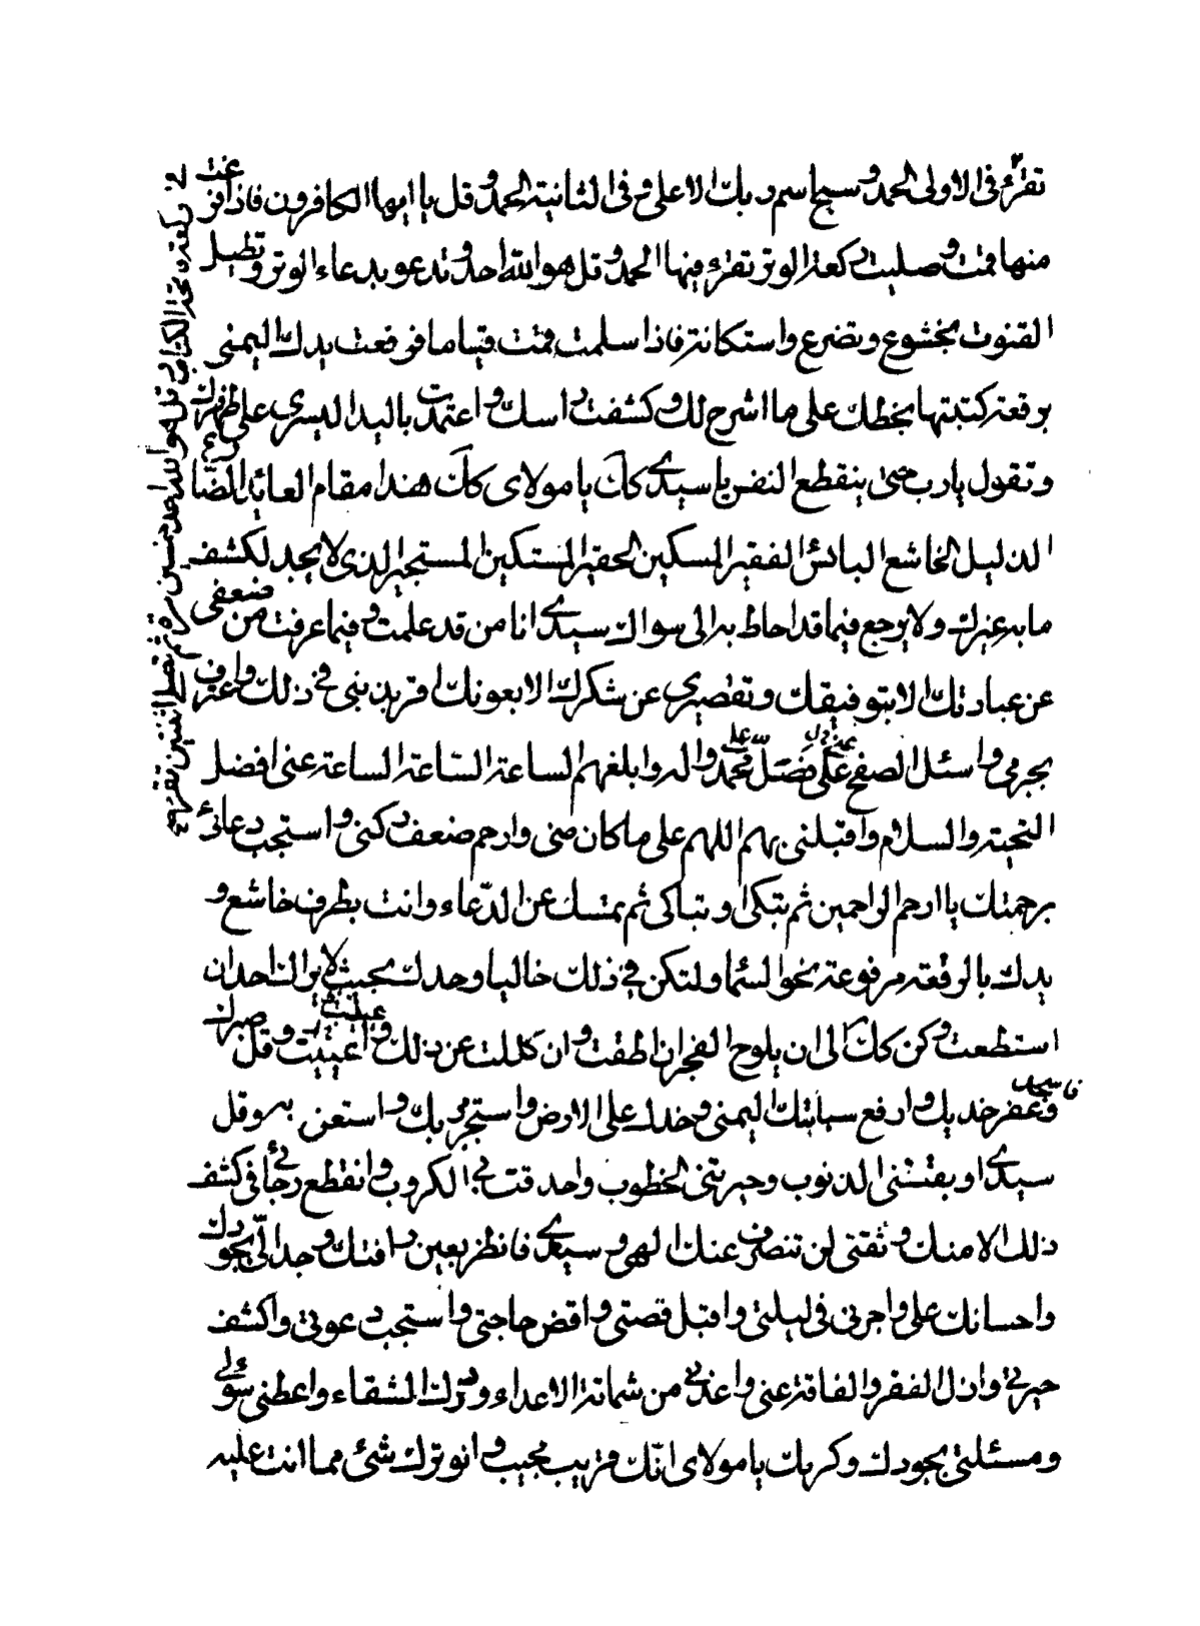 تقرء فى الاولى الحمد و سبح اسم ربك الاعلى و فى الثانية الحمد و قل يا ايها الكافرون فاذا فرغت
منها قمت و صليت ركعة الوتر تقرء فيها الحمد و قل هو الله احد و تدعو بدعاء الوتر و تطيل
القنوت بخشوع و تضرع و استكانة فاذا سلمت قمت قياما و رفعت يدك اليمنى
برقعة كتبتها بخطك على ما اشرح لك و كشفت راسك و اعتمدت باليد اليسرى على ظهرك
و تقول يارب حتى ينقطع النفس يا سيدى كك يا مولاى كك هذا مقام العائذ الضا
الذليل الخاشع البائس الفقير المسكين الحقير المستكين المستجير الذى لا يجد لكشف
ما به غيرك و لا يرجع فيما قد احاط به الى سواك سيدى انا من قد علمت و فيما عرفت من ضعفى
عن عبادتك الا بتوفيقك و تقصيرى عن شكرك الا بعونك اقر بذنبى فى ذلك و اعترف
بجرمى و اسئل الصفح عنى فصل على محمد و اله و ابلغهم الساعة الساعة الساعة عنى افضل
التحية و السلام و اقبلنى بهم اللهم على ما كان منى و ارحم ضعف ركنى و استجب دعائى
برحمتك يا ارحم الراحمين ثم تبكى و تباكى ثم تمسك عن الدعاء و انت بطرف خاشع و
يدك بالرقعة مرفوعة نحو السماء و لتكن فى ذلك خاليا وحدك بحيث لا يراك احد ان
استطعت و كن كك الى ان يلوح الفجر ان اطقت و ان كللت عن ذلك و اعييت و قل صبرك
فاسجد و عفر خديك و ارفع سبابتك اليمنى و خدك على الارض و استجر بك و استعن به و قل
سيدى اوبقتنى الذنوب و حيرتنى الخطوب و احدقت بى الكروب و انقطع رجائى فى كشف
ذلك الا منك و ثقتى لن تنصرف عنك الهى و سيدى فانظر بعين رافتك و جد الى بجودك
و احسانك على و اجرنى فى ليلتى و اقبل قصتى و اقض حاجتى و استجب دعوتى و اكشف
حيرتى و ازل الفقر و الفاقة عنى و اعذنى من شماتة الاعداء و درك الشقاء و اعطنى سؤلى
و مسئلتى بجودك و كرمك يا مولاى انك قريب مجيب و انو ترك شئ مما انت عليه
فى ركعة فاتحة الكتاب و قل هو الله احد خمسين مرة ثم تصلى اثنتين تقرء